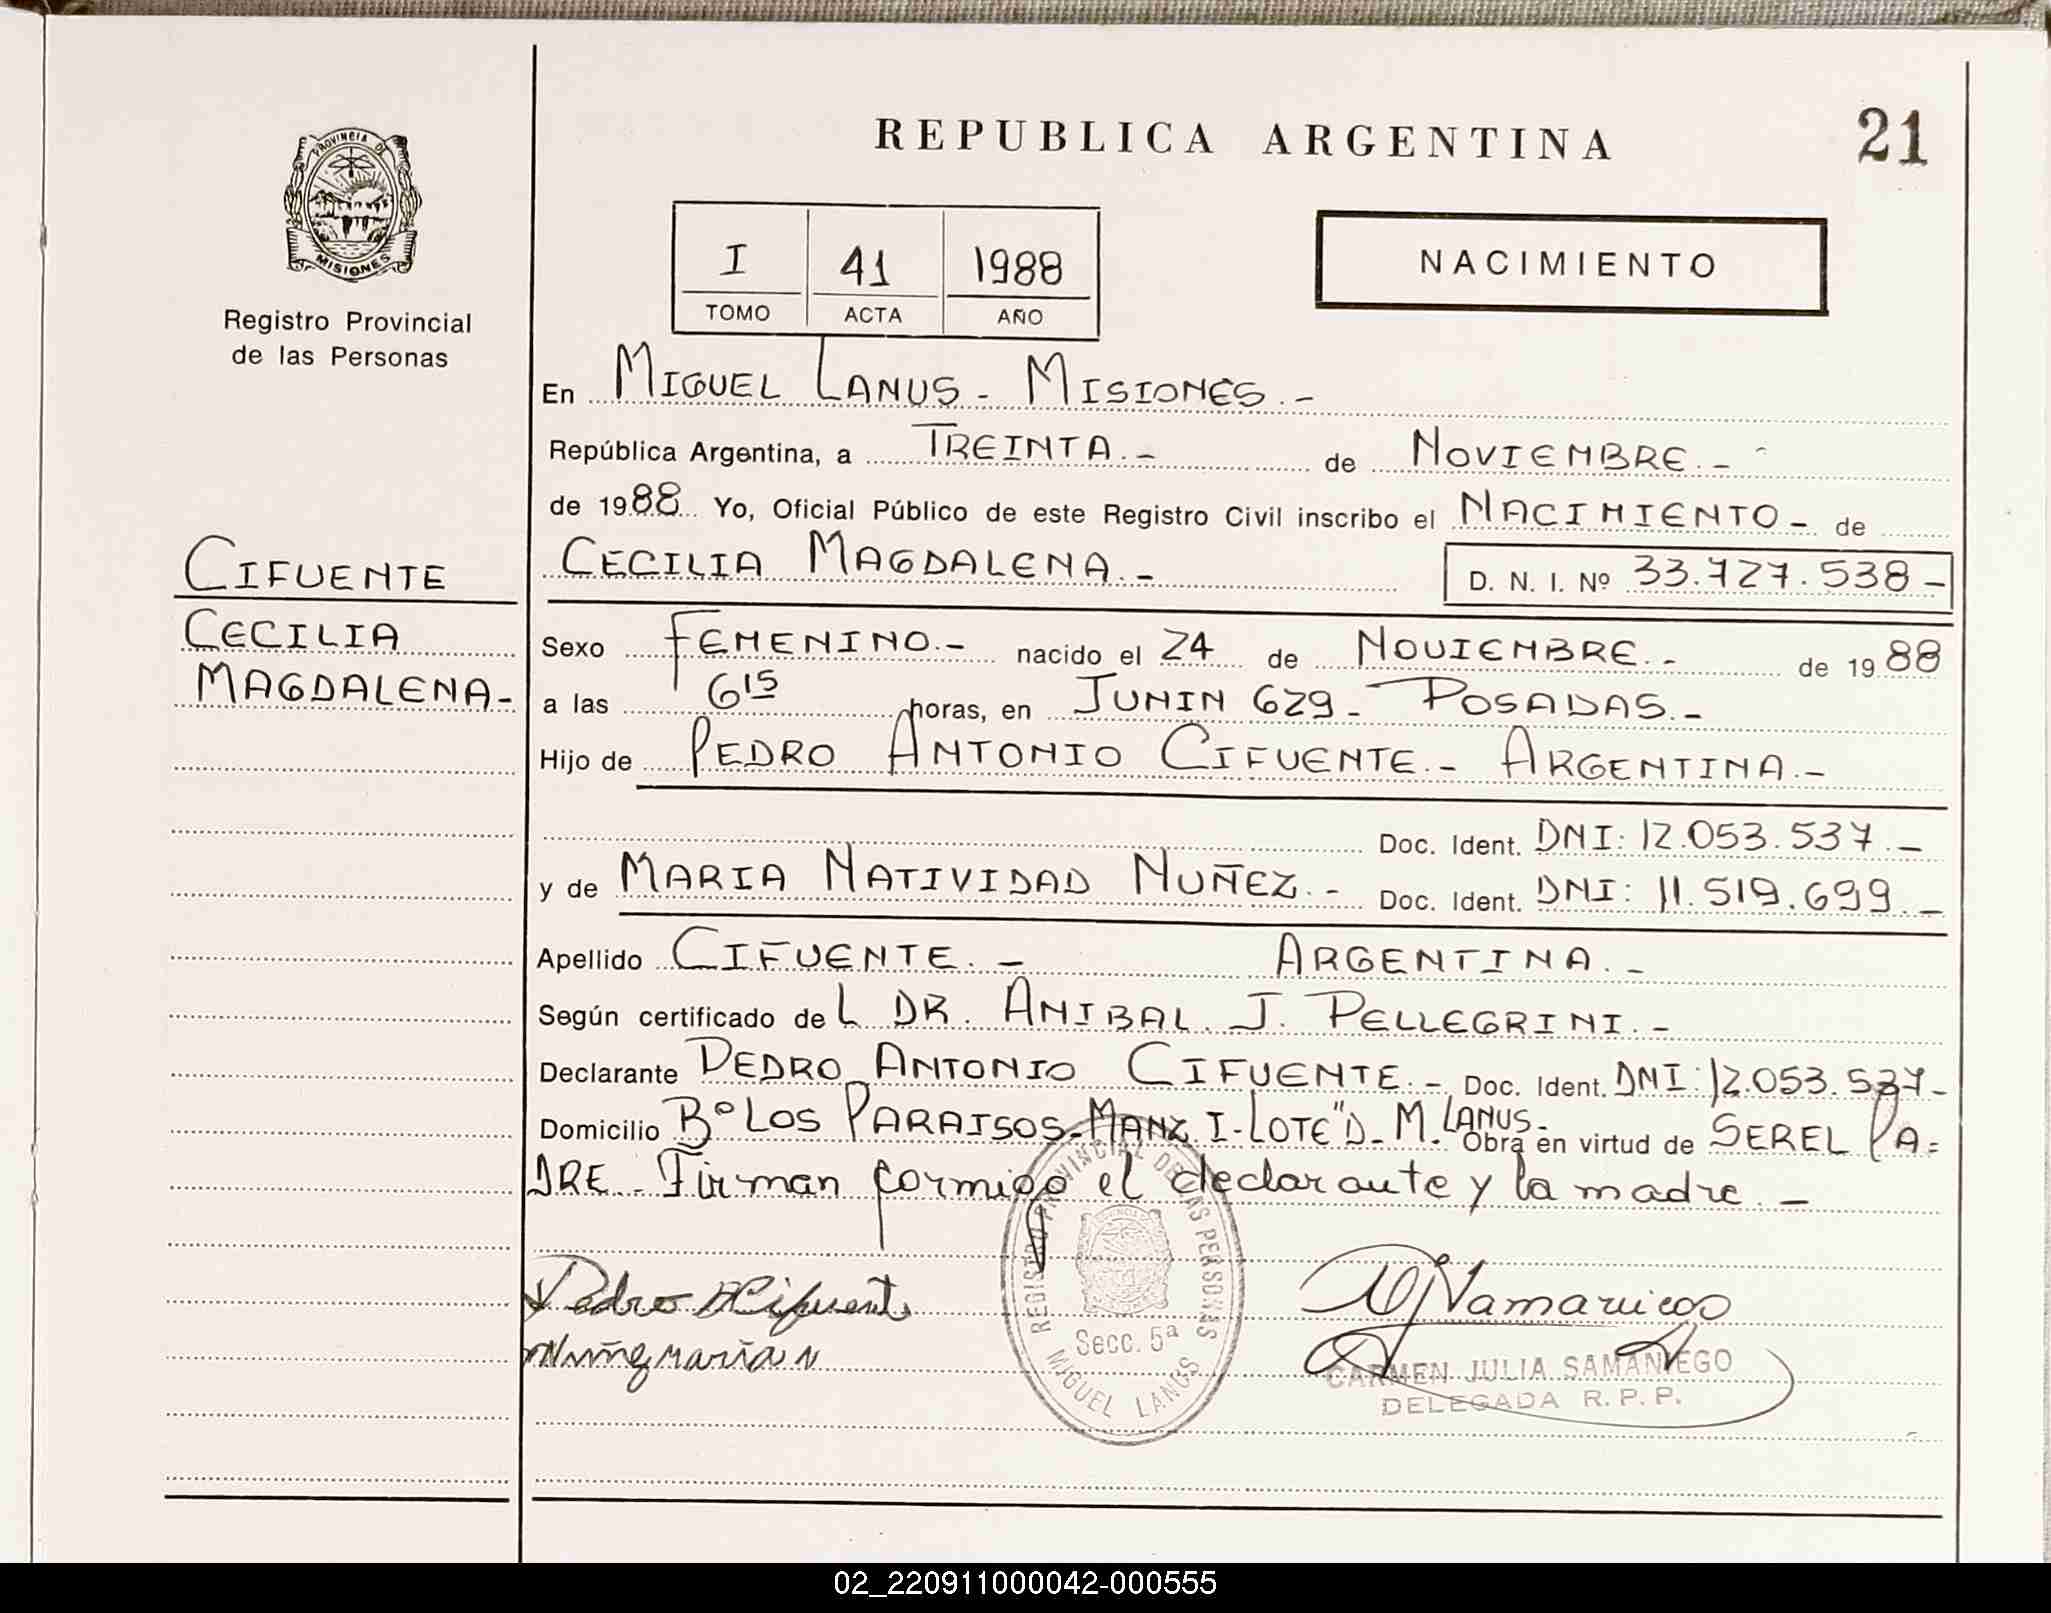 REPUBLICA ARGENTINA
21
PROVINCIA DE
MISIONES
Registro Provincial
de las Personas
I 41 1988
TOMO ACTA AÑO
NACIMIENTO
En MIGUEL LANUS - MISIONES.-
República Argentina, a TREINTA.- de NOVIEMBRE.-
de 1988 Yo, Oficial Público de este Registro Civil inscribo el NACIMIENTO- de
CECILIA MAGDALENA.- D. N. I. Nº 33.727.538-
CIFUENTE
CECILIA
MAGDALENA-
Sexo FEMENINO.- nacido el 24 de NOVIEMBRE.- de 1988
a las 6 15 horas, en JUNIN 629- POSADAS.-
Hijo de PEDRO ANTONIO CIFUENTE.- ARGENTINA.-
Doc. Ident. DNI: 12.053.537.-
y de MARIA NATIVIDAD NUÑEZ.- Doc. Ident. DNI: 11.519.699.-
Apellido CIFUENTE.- ARGENTINA.-
Según certificado de L DR. ANIBAL. J. PELLEGRINI.-
Declarante PEDRO ANTONIO CIFUENTE.- Doc. Ident. DNI: 12.053.537-
Domicilio Bº LOS PARAISOS-MANZ I-LOTE"D- M. LANUS- Obra en virtud de SEREL PA=
DRE.- Firman conmigo el declarante y la madre.-
Pedro A Cifuente
Nuñez Maria N
REGISTRO PROVINCIAL DE LAS PERSONAS
Secc. 5ª
MIGUEL LANUS
CARMEN JULIA SAMANIEGO
DELEGADA R.P.P.
02_220911000042-000555